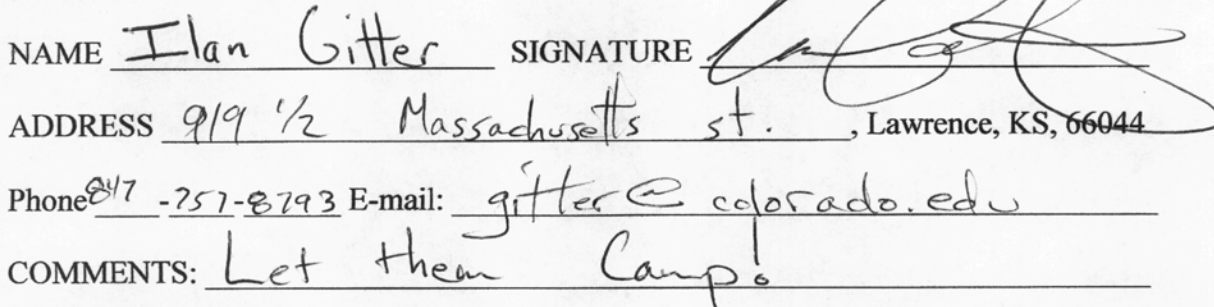 NAME Ilan Gitter SIGNATURE
ADDRESS 919 1/2 Massachusetts st. , Lawrence, KS, 66044
Phone 847 -757-8793 E-mail: gitter@colorado.edu
COMMENTS: Let them Camp!